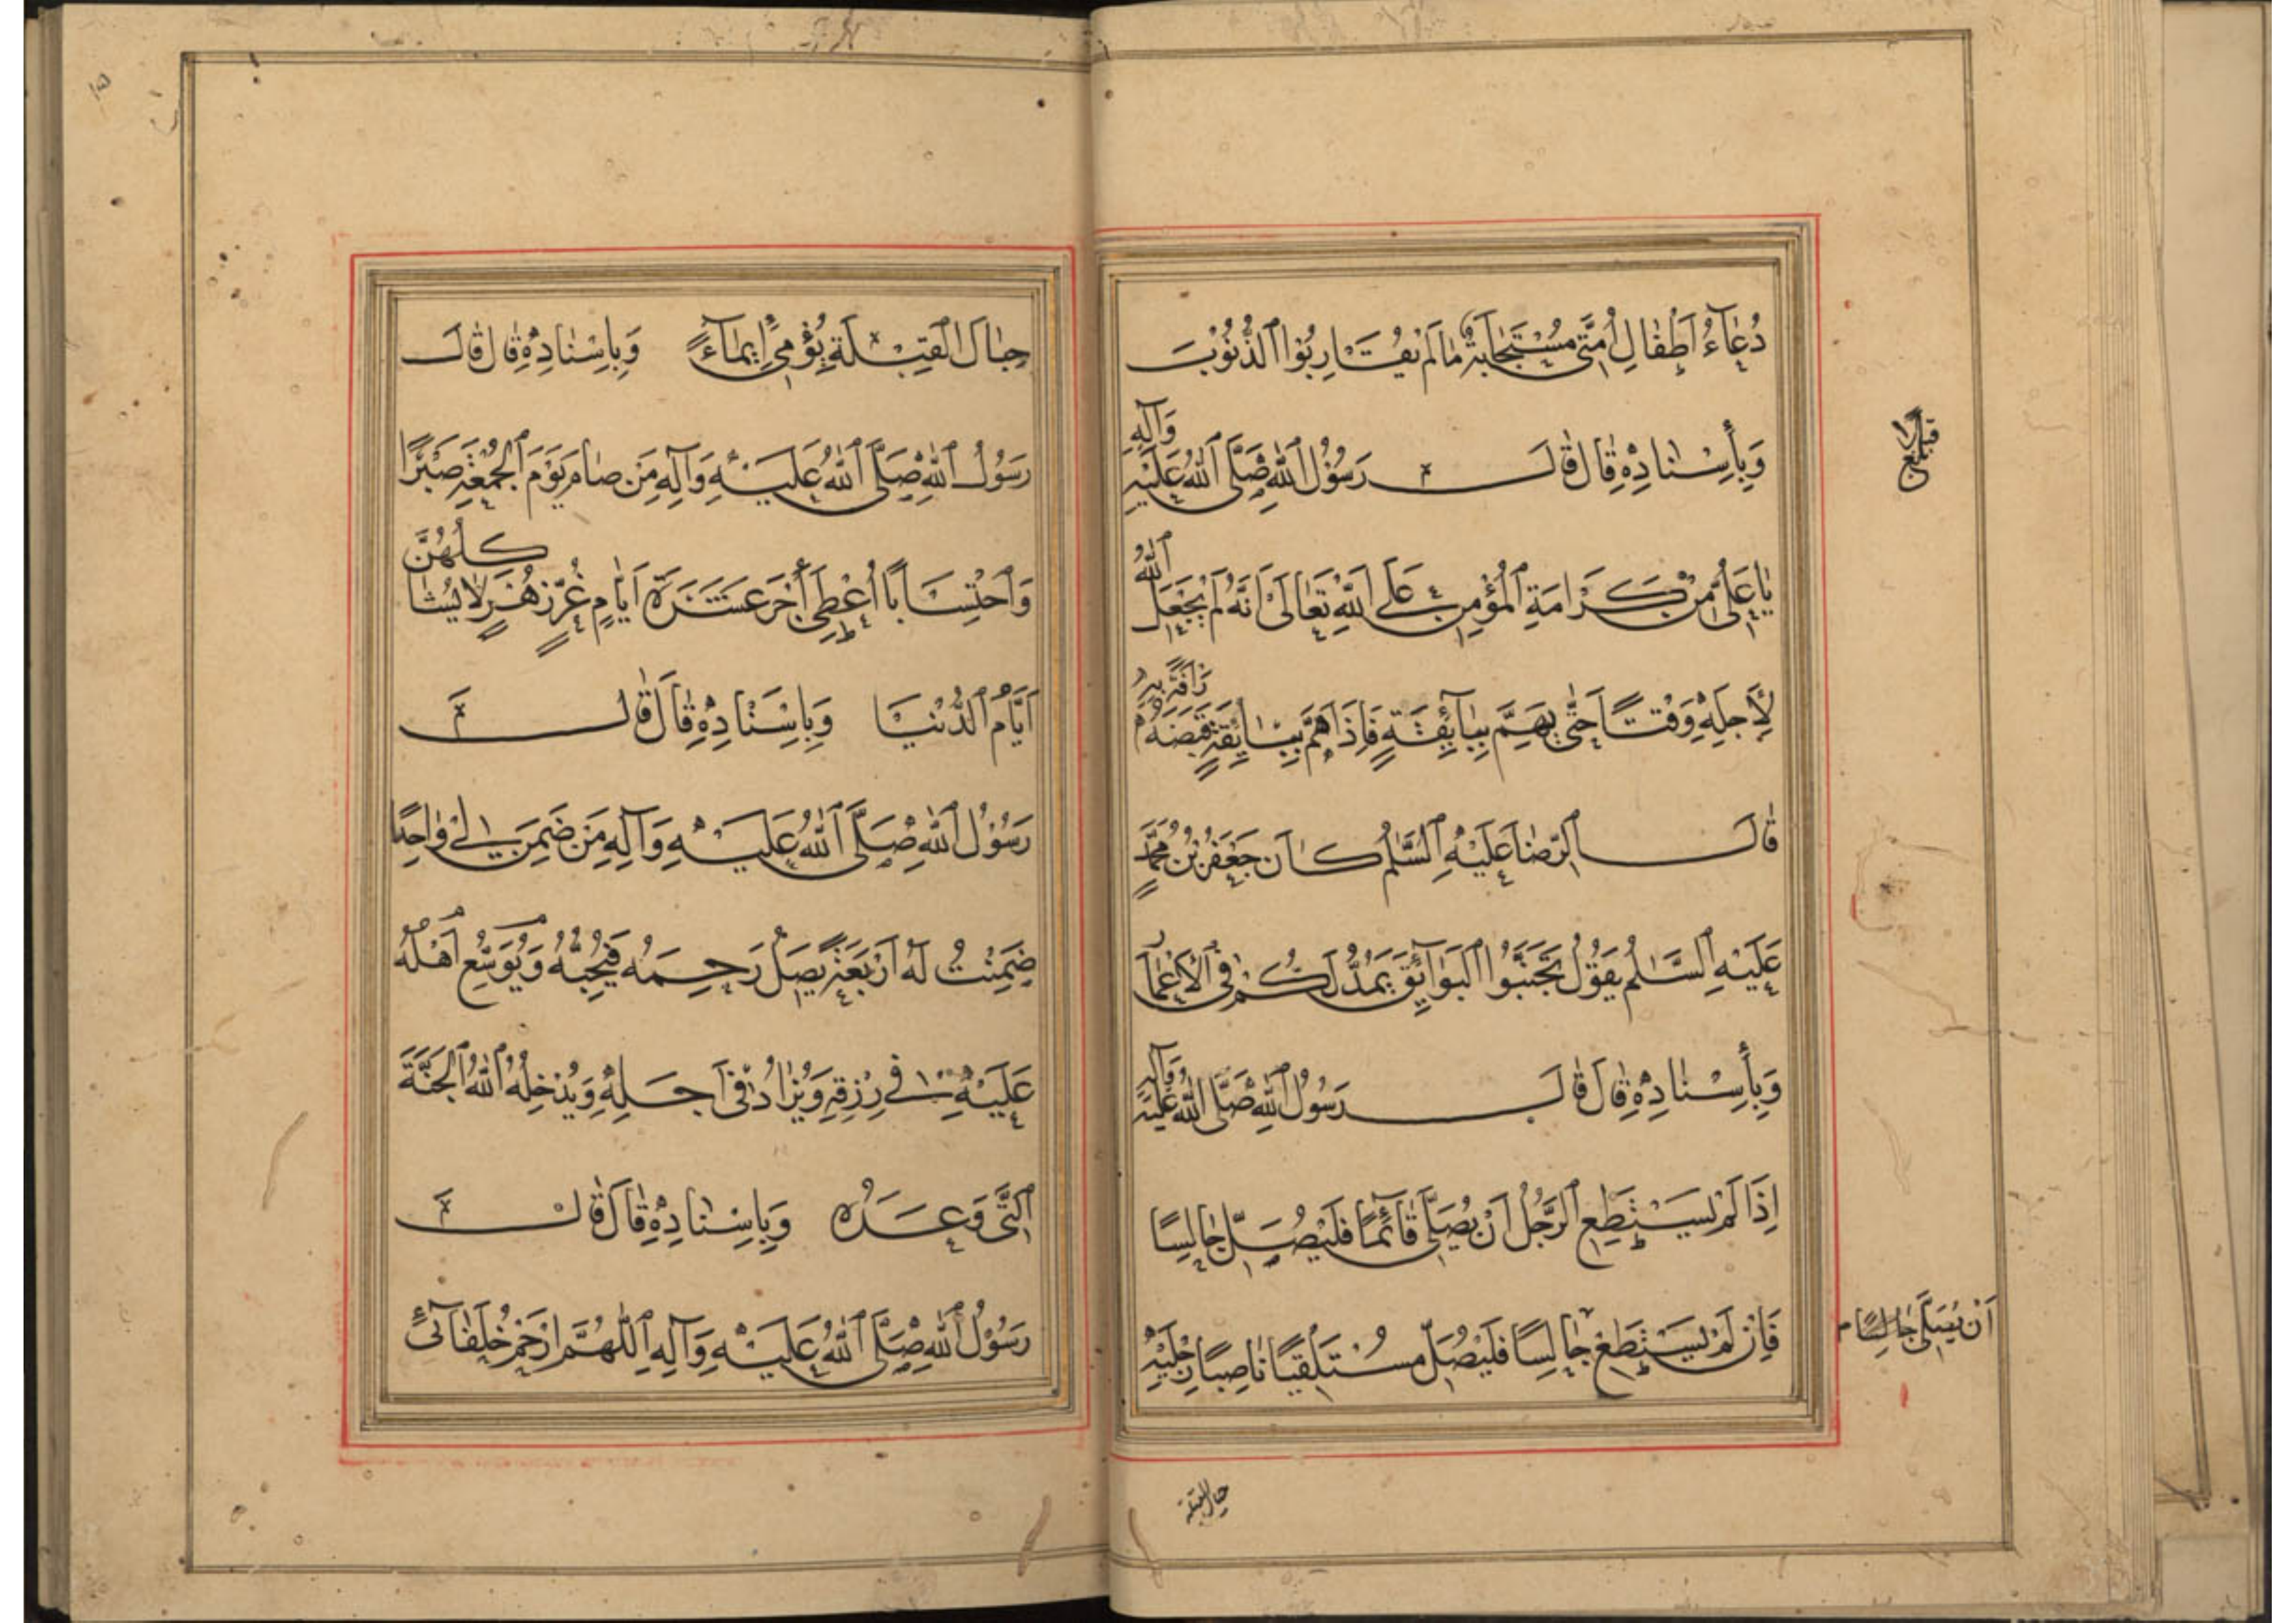 دُعَاءُ أَطْفَالِ أُمَّتِي مُسْتَجَابَةٌ مَا لَمْ يُقَارِبُوا الذُّنُوبَ
وَبِإِسْنَادِهِ قَالَ قَالَ رَسُولُ اللهِ صَلَّى اللهُ عَلَيْهِ وَآلِهِ
يَا عَلِيُّ مِنْ كَرَامَةِ الْمُؤْمِنِ عَلَى اللهِ تَعَالَى أَنَّهُ لَمْ يَجْعَلِ اللهُ
لِأَجَلِهِ وَقْتًا حَتَّى يَهِمَّ بِبَائِقَةٍ فَإِذَا هَمَّ بِبَائِقَةٍ قَبَضَهُ
قَالَ الرِّضَا عَلَيْهِ السَّلٰمُ كَانَ جَعْفَرُ بْنُ مُحَمَّدٍ
عَلَيْهِ السَّلٰمُ يَقُولُ تَجَنَّبُوا الْبَوَائِقَ يَمُدُّ لَكُمْ فِي الْأَعْمَارِ
وَبِإِسْنَادِهِ قَالَ قَالَ رَسُولُ اللهِ صَلَّى اللهُ عَلَيْهِ وَآلِهِ
إِذَا لَمْ يَسْتَطِعِ الرَّجُلُ أَنْ يُصَلِّيَ قَائِمًا فَلْيُصَلِّ جَالِسًا
فَإِنْ لَمْ يَسْتَطِعْ جَالِسًا فَلْيُصَلِّ مُسْتَلْقِيًا نَاصِبًا رِجْلَيْهِ
أَنْ يُصَلِّيَ جَالِسًا
حيال القبلة
حِيَالَ الْقِبْلَةِ يُؤْمِئُ إِيمَاءً وَبِإِسْنَادِهِ قَالَ قَالَ
رَسُولُ اللهِ صَلَّى اللهُ عَلَيْهِ وَآلِهِ مَنْ صَامَ يَوْمَ الْجُمُعَةِ صَبْرًا
وَاحْتِسَابًا أُعْطِيَ أَجْرَ عَشَرَةِ أَيَّامٍ غُرٍّ زُهْرٍ لَا يُشَاكِلُهُنَّ
أَيَّامُ الدُّنْيَا وَبِإِسْنَادِهِ قَالَ قَالَ
رَسُولُ اللهِ صَلَّى اللهُ عَلَيْهِ وَآلِهِ مَنْ ضَمِنَ لِي وَاحِدًا
ضَمِنْتُ لَهُ أَرْبَعَةً يَصِلُ رَحِمَهُ فَيُحِبُّهُ وَيُوَسِّعُ أَهْلُهُ
عَلَيْهِ فِي رِزْقِهِ وَيُزَادُ فِي أَجَلِهِ وَيُدْخِلُهُ اللهُ الْجَنَّةَ
الَّتِي وَعَدَهُ وَبِإِسْنَادِهِ قَالَ قَالَ
رَسُولُ اللهِ صَلَّى اللهُ عَلَيْهِ وَآلِهِ اللّٰهُمَّ ارْحَمْ خُلَفَائِي